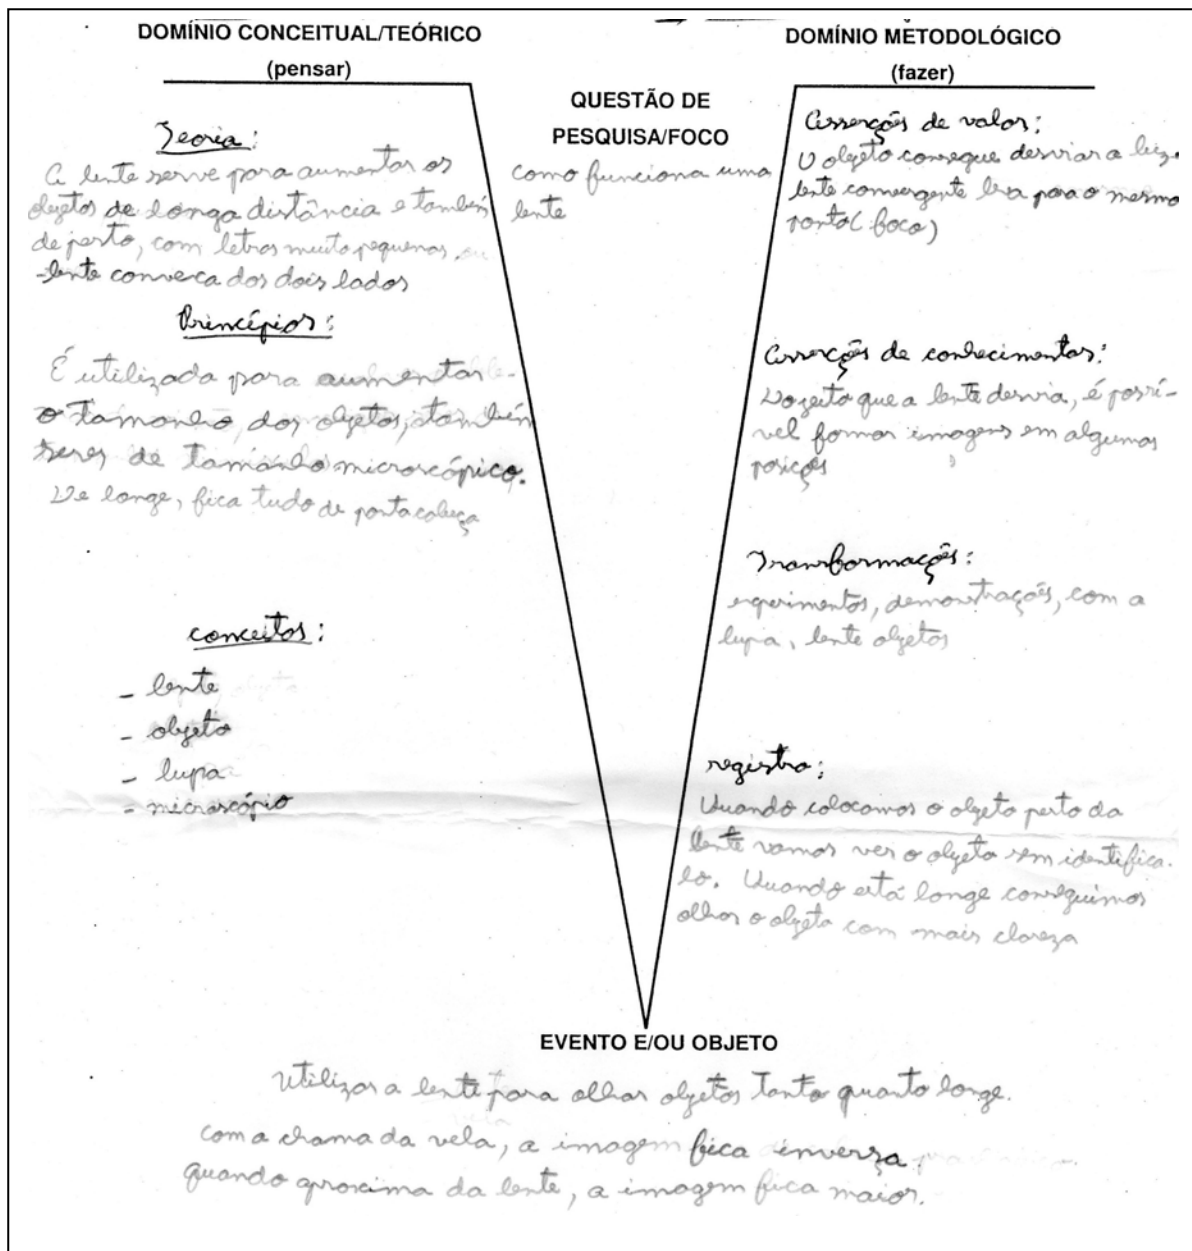 DOMÍNIO CONCEITUAL/TEÓRICO
(pensar)
Teoria:
A lente serve para aumentar os
objetos de longa distância e também
de perto, com letras muito pequenas, ou
-lente convexa dos dois lados
Princípios:
É utilizada para aumentar
o tamanho dos objetos, também
seres de tamanho microscópico.
De longe, fica tudo de ponta cabeça
conceitos:
- lente
- objeto
- lupa
- microscópio
QUESTÃO DE
PESQUISA/FOCO
como funciona uma
lente
DOMÍNIO METODOLÓGICO
(fazer)
Asserções de valor:
O objeto consegue desviar a luz a
lente convergente leva para o mesmo
ponto (foco)
Asserções de conhecimentos:
Do jeito que a lente desvia, é possí-
vel formar imagens em algumas
posições
Transformações:
experimentos, demonstrações, com a
lupa, lente objetos
registro:
Quando colocamos o objeto perto da
lente vamos ver o objeto sem identifica-
lo. Quando está longe conseguimos
olhar o objeto com mais clareza
EVENTO E/OU OBJETO
Utilizar a lente para olhar objetos tanto quanto longe.
com a chama da vela, a imagem fica inversa
quando aproxima da lente, a imagem fica maior.